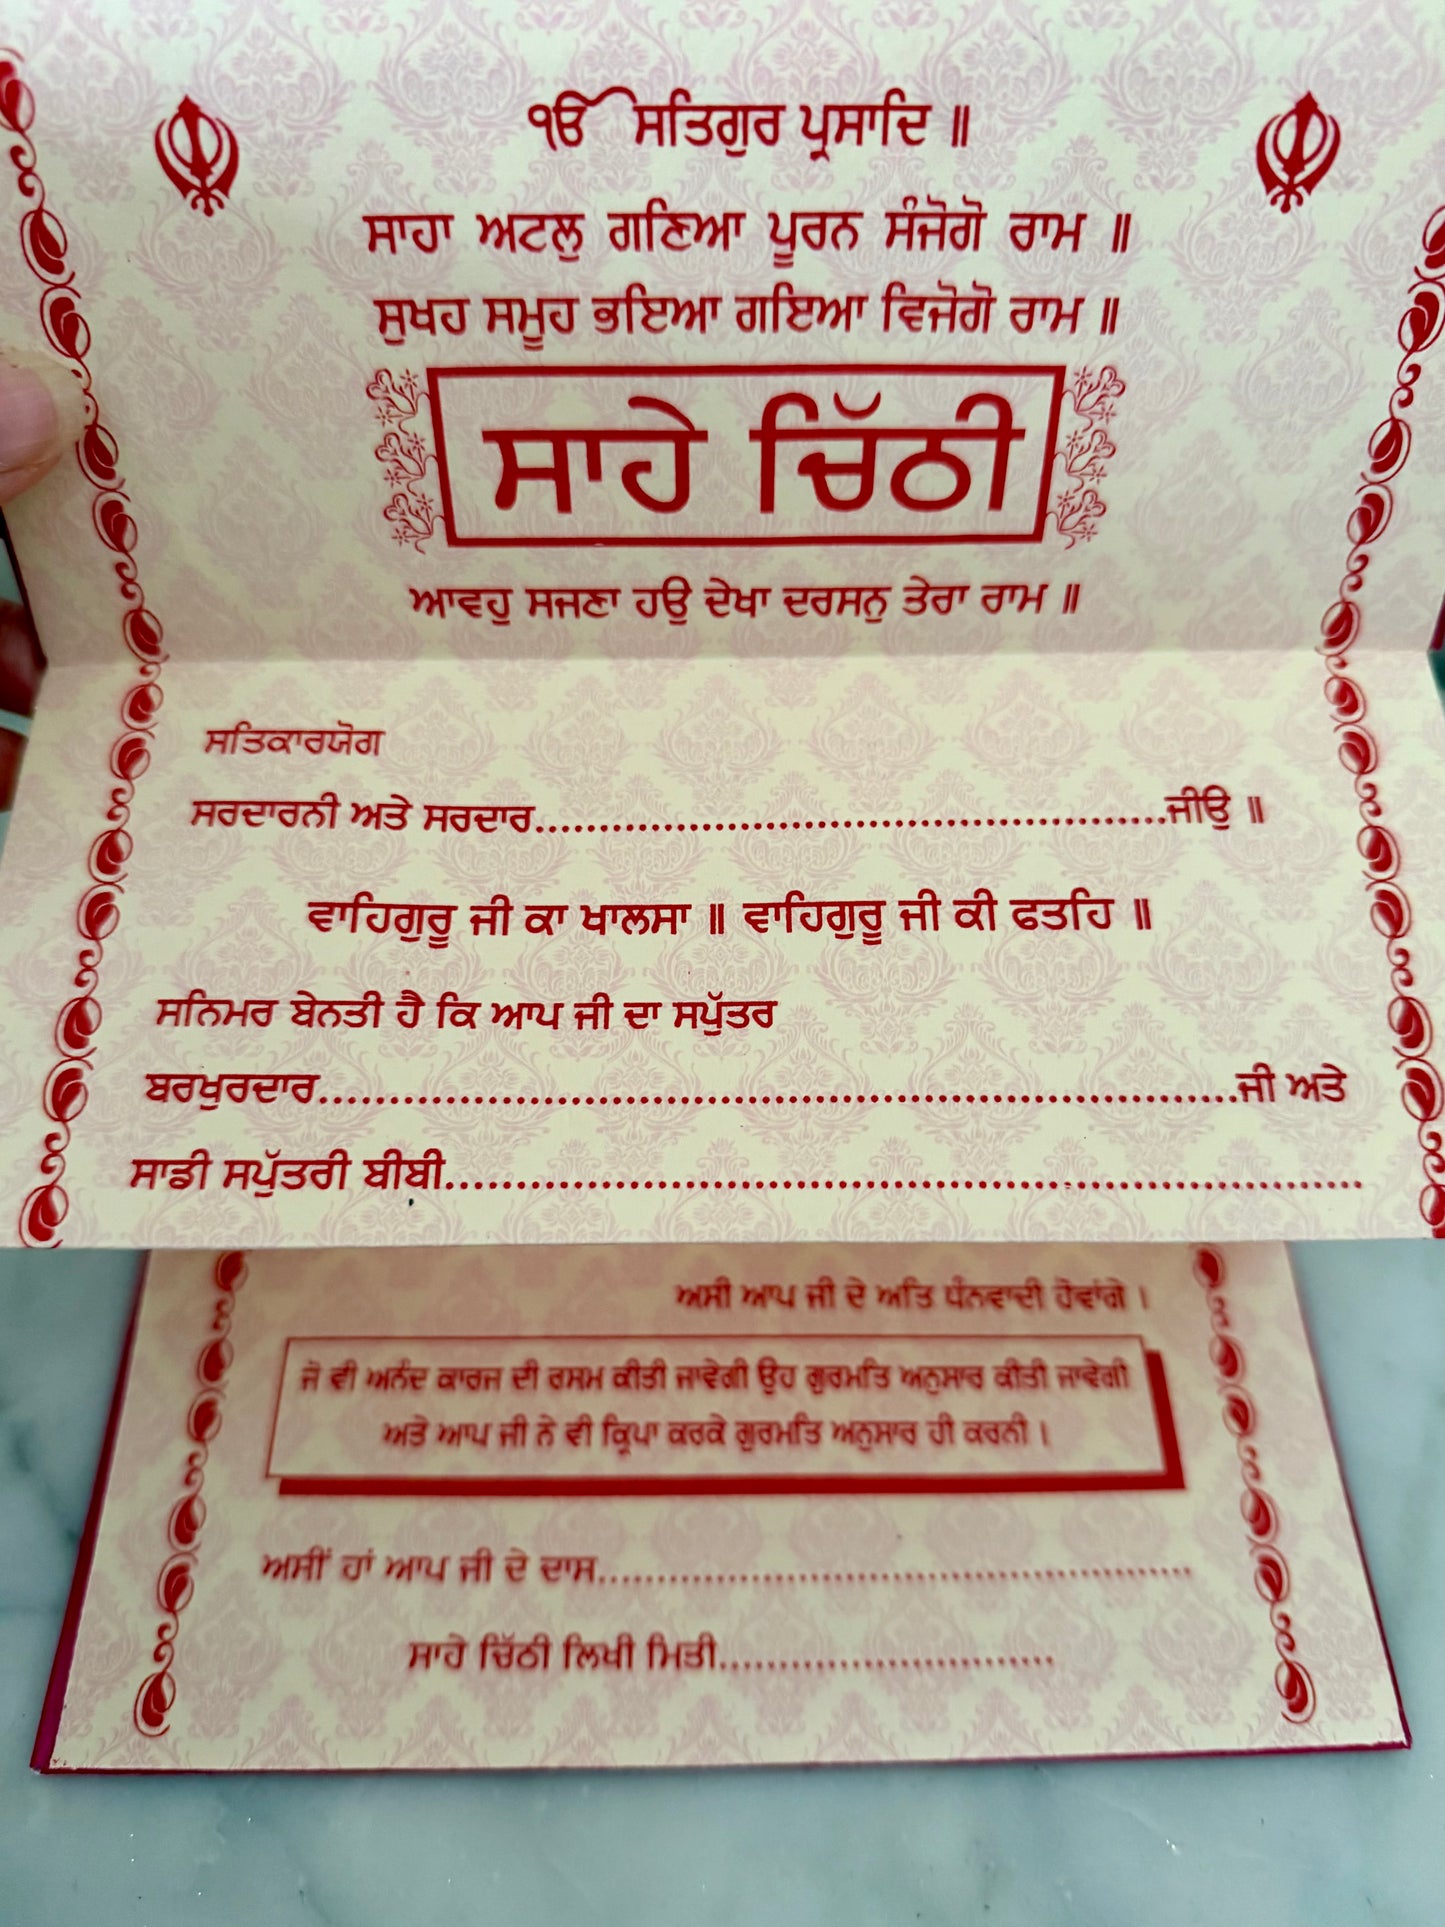 ੴ ਸਤਿਗੁਰ ਪ੍ਰਸਾਦਿ ॥
ਸਾਹਾ ਅਟਲੁ ਗਣਿਆ ਪੂਰਨ ਸੰਜੋਗੋ ਰਾਮ ॥
ਸੁਖਹ ਸਮੂਹ ਭਇਆ ਗਇਆ ਵਿਜੋਗੋ ਰਾਮ ॥
ਸਾਹੇ ਚਿੱਠੀ
ਆਵਹੁ ਸਜਣਾ ਹਉ ਦੇਖਾ ਦਰਸਨੁ ਤੇਰਾ ਰਾਮ ॥
ਸਤਿਕਾਰਯੋਗ
ਸਰਦਾਰਨੀ ਅਤੇ ਸਰਦਾਰ..................................................ਜੀਉ ॥
ਵਾਹਿਗੁਰੂ ਜੀ ਕਾ ਖਾਲਸਾ ॥ ਵਾਹਿਗੁਰੂ ਜੀ ਕੀ ਫਤਹਿ ॥
ਸਨਿਮਰ ਬੇਨਤੀ ਹੈ ਕਿ ਆਪ ਜੀ ਦਾ ਸਪੁੱਤਰ
ਬਰਖੁਰਦਾਰ......................................................................ਜੀ ਅਤੇ
ਸਾਡੀ ਸਪੁੱਤਰੀ ਬੀਬੀ......................................................................
ਅਸੀ ਆਪ ਜੀ ਦੇ ਅਤਿ ਧੰਨਵਾਦੀ ਹੋਵਾਂਗੇ ।
ਜੋ ਵੀ ਅਨੰਦ ਕਾਰਜ ਦੀ ਰਸਮ ਕੀਤੀ ਜਾਵੇਗੀ ਉਹ ਗੁਰਮਤਿ ਅਨੁਸਾਰ ਕੀਤੀ ਜਾਵੇਗੀ
ਅਤੇ ਆਪ ਜੀ ਨੇ ਵੀ ਕ੍ਰਿਪਾ ਕਰਕੇ ਗੁਰਮਤਿ ਅਨੁਸਾਰ ਹੀ ਕਰਨੀ ।
ਅਸੀਂ ਹਾਂ ਆਪ ਜੀ ਦੇ ਦਾਸ..................................................
ਸਾਹੇ ਚਿੱਠੀ ਲਿਖੀ ਮਿਤੀ............................